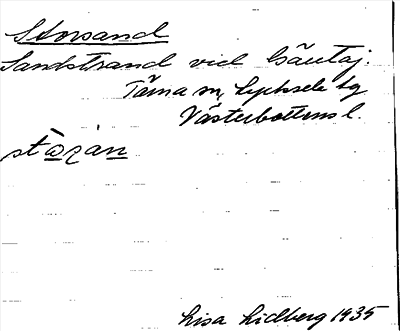 Storsand
Sandstrand vid Gäutaj.
Tärna sn, Lycksele lg
Västerbottens l.
Lisa Lidberg 1935